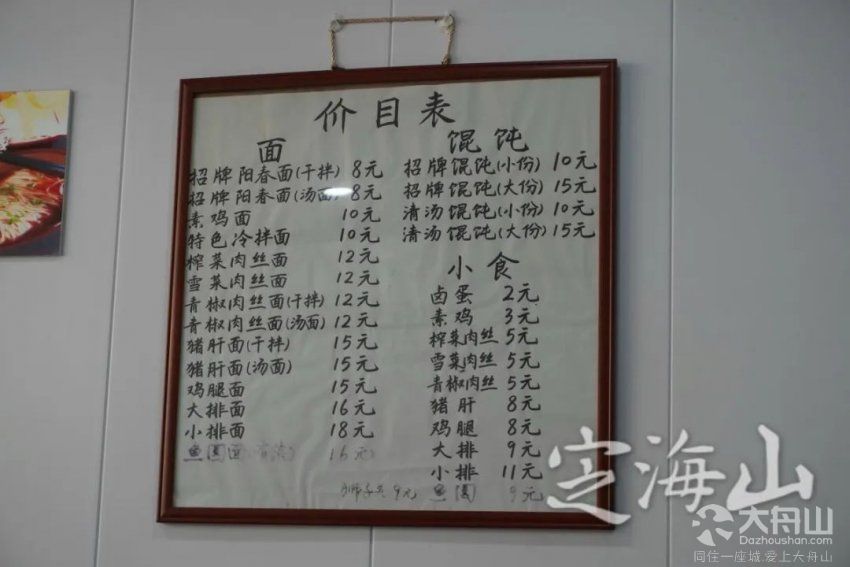 价目表
面
招牌阳春面(干拌) 8元
招牌阳春面(汤面) 8元
素鸡面 10元
特色冷拌面 10元
榨菜肉丝面 12元
雪菜肉丝面 12元
青椒肉丝面(干拌) 12元
青椒肉丝面(汤面) 12元
猪肝面(干拌) 15元
猪肝面(汤面) 15元
鸡腿面 15元
大排面 16元
小排面 18元
鱼圆面 16元
馄饨
招牌馄饨(小份) 10元
招牌馄饨(大份) 15元
清汤馄饨(小份) 10元
清汤馄饨(大份) 15元
小食
卤蛋 2元
素鸡 3元
榨菜肉丝 5元
雪菜肉丝 5元
青椒肉丝 5元
猪肝 8元
鸡腿 8元
大排 9元
小排 11元
狮子头 9元 鱼圆 9元
定海山
大舟山
Dazhoushan.com
同住一座城.爱上大舟山